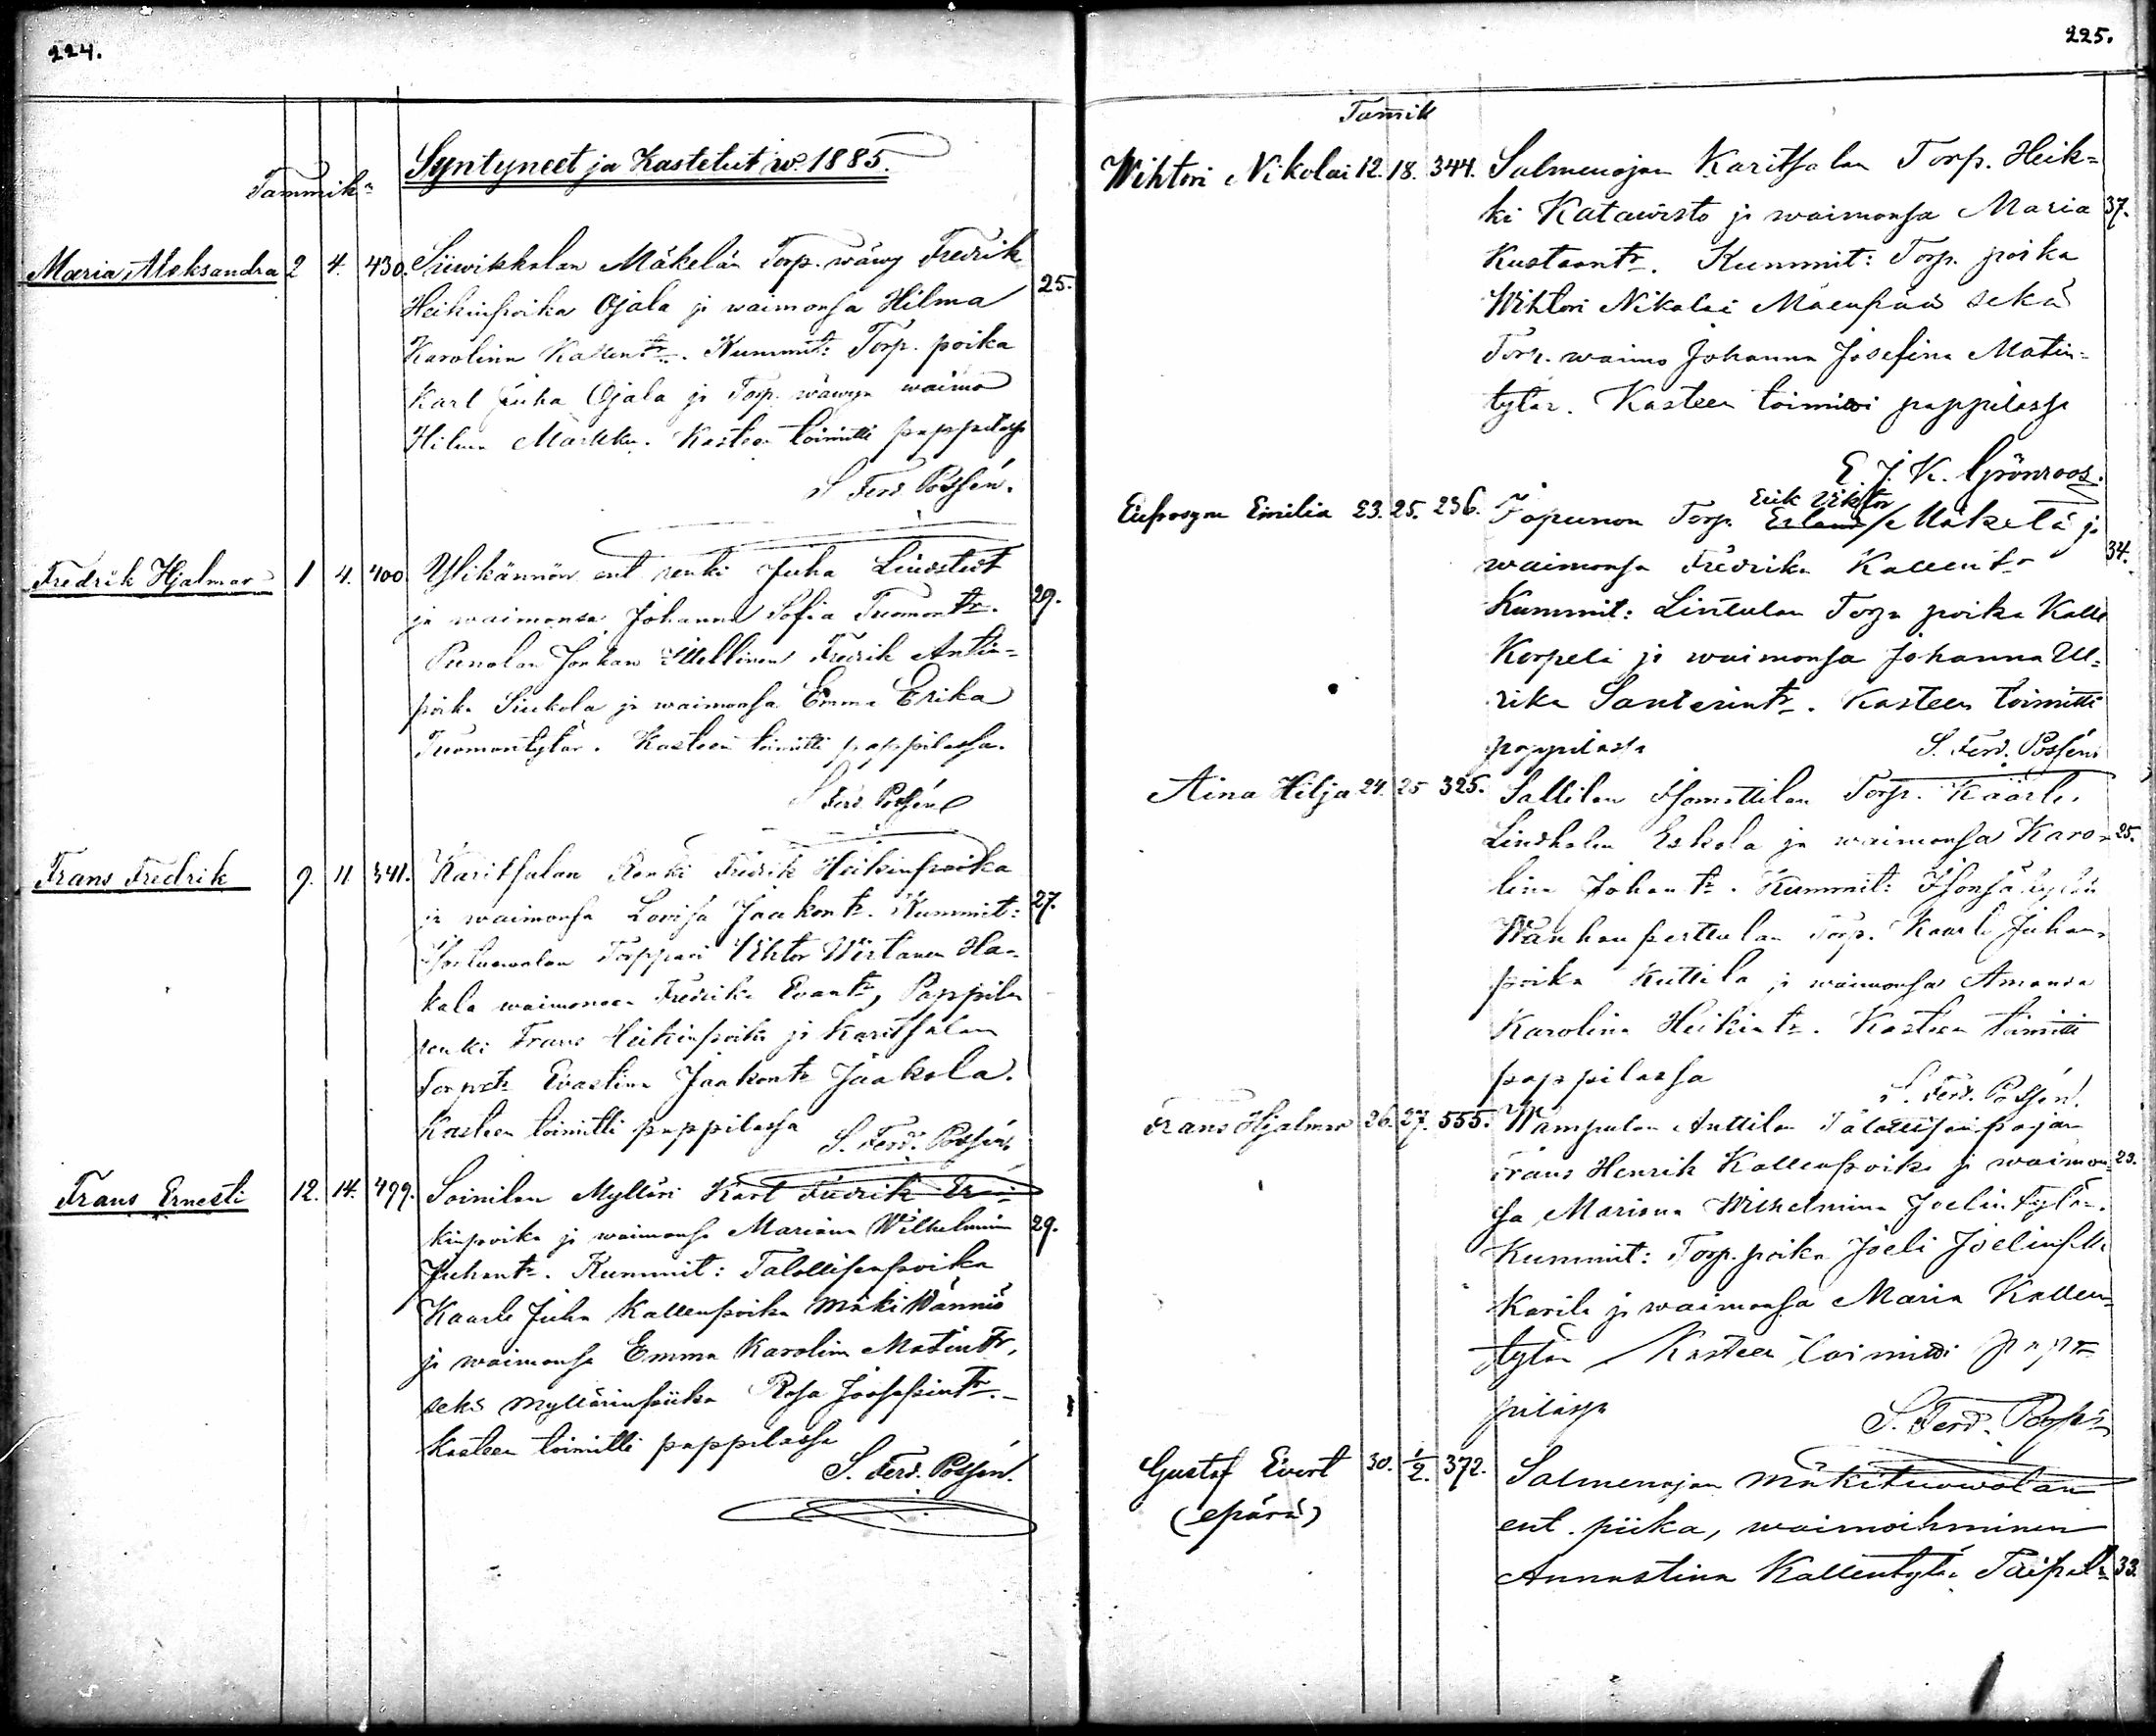 224.
Syntyneet ja Kastetut w. 1885.
Tammik.
Maria Aleksandra 2 4. 430. Siiwikkalan Mäkelän Torp. wäwy Fredrik
25.
Heikinpoika Ojala ja waimonsa Hilma
Karolina Kallentr. Kummit: Torp. poika
Karl Juha Ojala ja Torp. wäwyn waimo
Hilma Markku. Kasteen toimitti pappilassa
S Ferd. Possén.
Fredrik Hjalmar 1 4. 400 Ylikännön ent renki Juha Lindstedt
ja waimonsa Johanna Sofia Tuomontr. 29.
Punolan Jonkan Fredrik Antin-
poika Siukola ja waimonsa Emma Erika
Tuomontytär. Kasteen toimitti pappilassa.
S Ferd Possén
Frans Fredrik 9. 11 341. Karitsalan Renki Fredrik Heikinpoika
ja waimonsa Lovisa Jaakontr. Kummit: 27.
Torppari Vihtor Wirtanen Ha-
kala waimonsa Fredrika Evantr, Pappilan
renki Frans Heikinpoika ja Karitsalan
Torp.tr Evastina Jaakontr Jaakola.
Kasteen toimitti pappilassa S. Ferd. Possén
Frans Ernesti 12. 14. 499. Soinilan Mylläri Karl Fredrik Er
kinpoika ja waimonsa Mariana Wilhelmina 29.
Juhantr. Kummit: Talollisenpoika
Kaarle Juha Kallenpoika Mäki Wänniö
ja waimonsa Emma Karolina Matintr,
sekä Myllärinpiika Rosa Joosefintr.-
Kasteen toimitti pappilassa
S. Ferd. Possén.
225.
Tamik
Wihtori Nikolai 12. 18. 344. Salmenojan Karitsalan Torp. Heik-
ki Katawisto ja waimonsa Maria 37.
Kustaantr. Kummit: Torp. poika
Wihtori Nikolai Mäenpää sekä
Torp. waimo Johanna Josefina Matin-
tytär. Kasteen toimitti pappilassa
E. J. K. Grönroos.
Erik Viktor
Eufrosyne Emilia 23. 25. 236. Torp. Erland Mäkelä ja
waimonsa Fredrika Kallentr 34.
Kummit: Lintulan Torp poika Kalle
Korpela ja waimonsa Johanna Ul-
rika Santerintr. Kasteen toimitti
pappilassa S. Ferd. Possén
Aina Hilja 24. 25 325. Sallilan Torp. Kaarle
Lindholm Eskola ja waimonsa Karo- 25.
lina Johantr. Kummit:
Wanhanperttulan Torp. Kaarle Juhan-
poika Kuttila ja waimonsa Amanda
Karolina Heikintr. Kasteen toimitti
pappilassa S. Ferd. Possén.
Frans Hjalmar 26. 27. 555. Wampulan Anttilan Talollisenpojan
Frans Henrik Kallenpoika ja waimon- 23.
sa Mariana Wilhelmina Joelintytär.
Kummit: Torp. poika Joeli Joelinp.
Karila ja waimonsa Maria Kallen-
tytär Kasteen toimitti pap-
pilassa S. Ferd. Possén
Gustaf Evert 30. 1/2. 372. Salmenojan Mäkituwolan
(epärä) ent. piika, waimoihminen
Annastina Kallentytär Taipale 33.